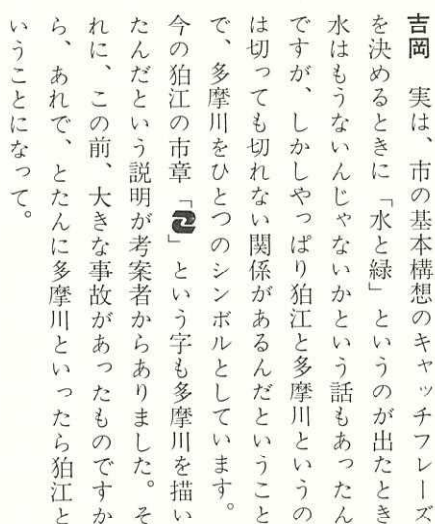 吉岡　実は、市の基本構想のキャッチフレーズ
を決めるときに「水と緑」というのが出たとき
水はもうないんじゃないかという話もあったん
ですが、しかしやっぱり狛江と多摩川というの
は切っても切れない関係があるんだということ
で、多摩川をひとつのシンボルとしています。
今の狛江の市章「」という字も多摩川を描い
たんだという説明が考案者からありました。そ
れに、この前、大きな事故があったものですか
ら、あれで、とたんに多摩川といったら狛江と
いうことになって。